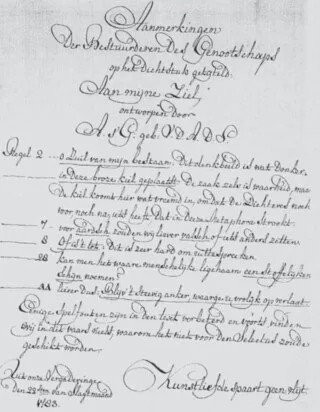 Aanmerkingen
Der Bestuurderen Des Genootschaps
op het Dichtstuk getyteld.
Aan myne Ziel;
ontworpen door
A. S. G. geb. V. D. A. D. S.
Regel 2 o Zuil van myn bestaan. Dit denkbeeld is wat donker,
in deze broze kuil geplaatst. De zaak zelv is waarheid, maar
de kuil komt hier wat vreemd in, om dat de Dichteres noch
voor noch na, iets heeft Dat in deeze Metaphora strookt.
7. voor aardsch zouden wy liever valsch of iets anders zetten
8 Of is 't tot. Dit is zeer hard om uittespreken.
28 kan men het waare menschelyke lighaam een stoffelyken
schyn noemen?
44 liever dus. Blyv 't stevig anker, waar ge u vrolyk op verlaat.
Eenige spelfouten zyn in den text verbeterd en voorts vinden
wy in dit waare niets, waarom het niet voor den
geschikt worden.
Uit onze Vergaderinge
den 28sten van Slagtmaand
1783.
Kunstliefde spaart geen vlyt.